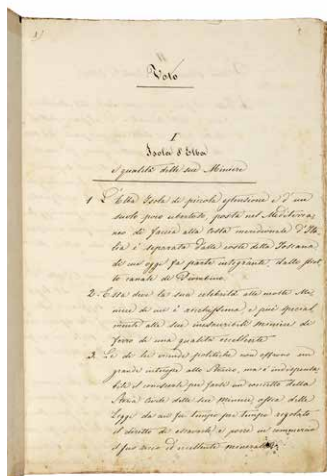 Voto
I
Isola d'Elba
e qualità delle sue Miniere
1 L'Elba Isola di piccola estensione e d'un
suolo poco ubertoso, posta nel Mediterra,
neo di faccia alla costa meridionale d'Ita
lia è separata dalla costa della Toscana
di cui oggi fa parte integrante, dallo stret
to canale di Piombino.
2. Essa deve la sua celebrità alle molte Mi
niere di cui è ricchissima, e più special
mente alle sue inesauribili miniere di
ferro di una qualità eccellente.
3. Le di lei vicende politiche non offrono un
grande interesse alla Storia, ma è indispensa
bile il conoscerle per farsi un concetto della
Storia civile delle sue miniere ossia delle
Leggi da cui fu tempo per tempo regolato
il diritto di escavarle, e porre in commercio
il suo ricco ed eccellente minerale.